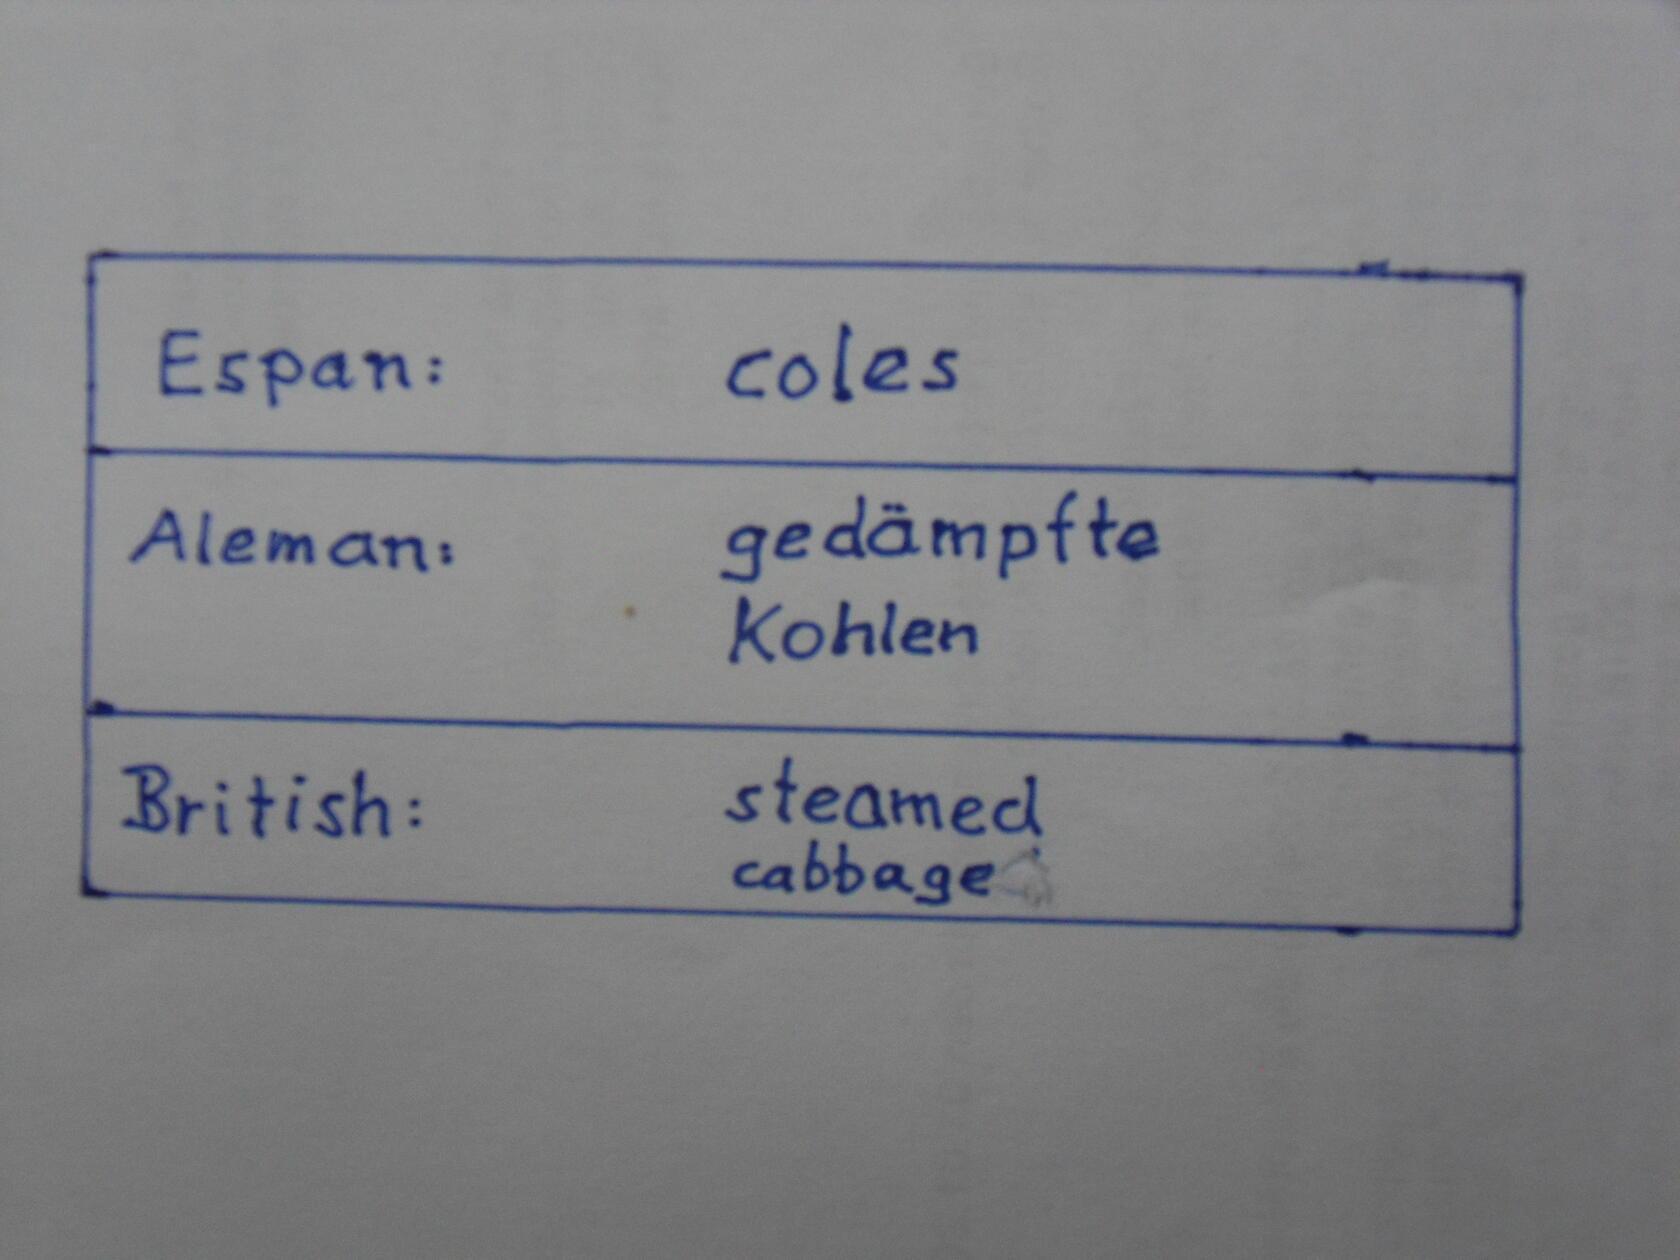 Espan: coles
Aleman: gedämpfte
Kohlen
British: steamed
cabbage